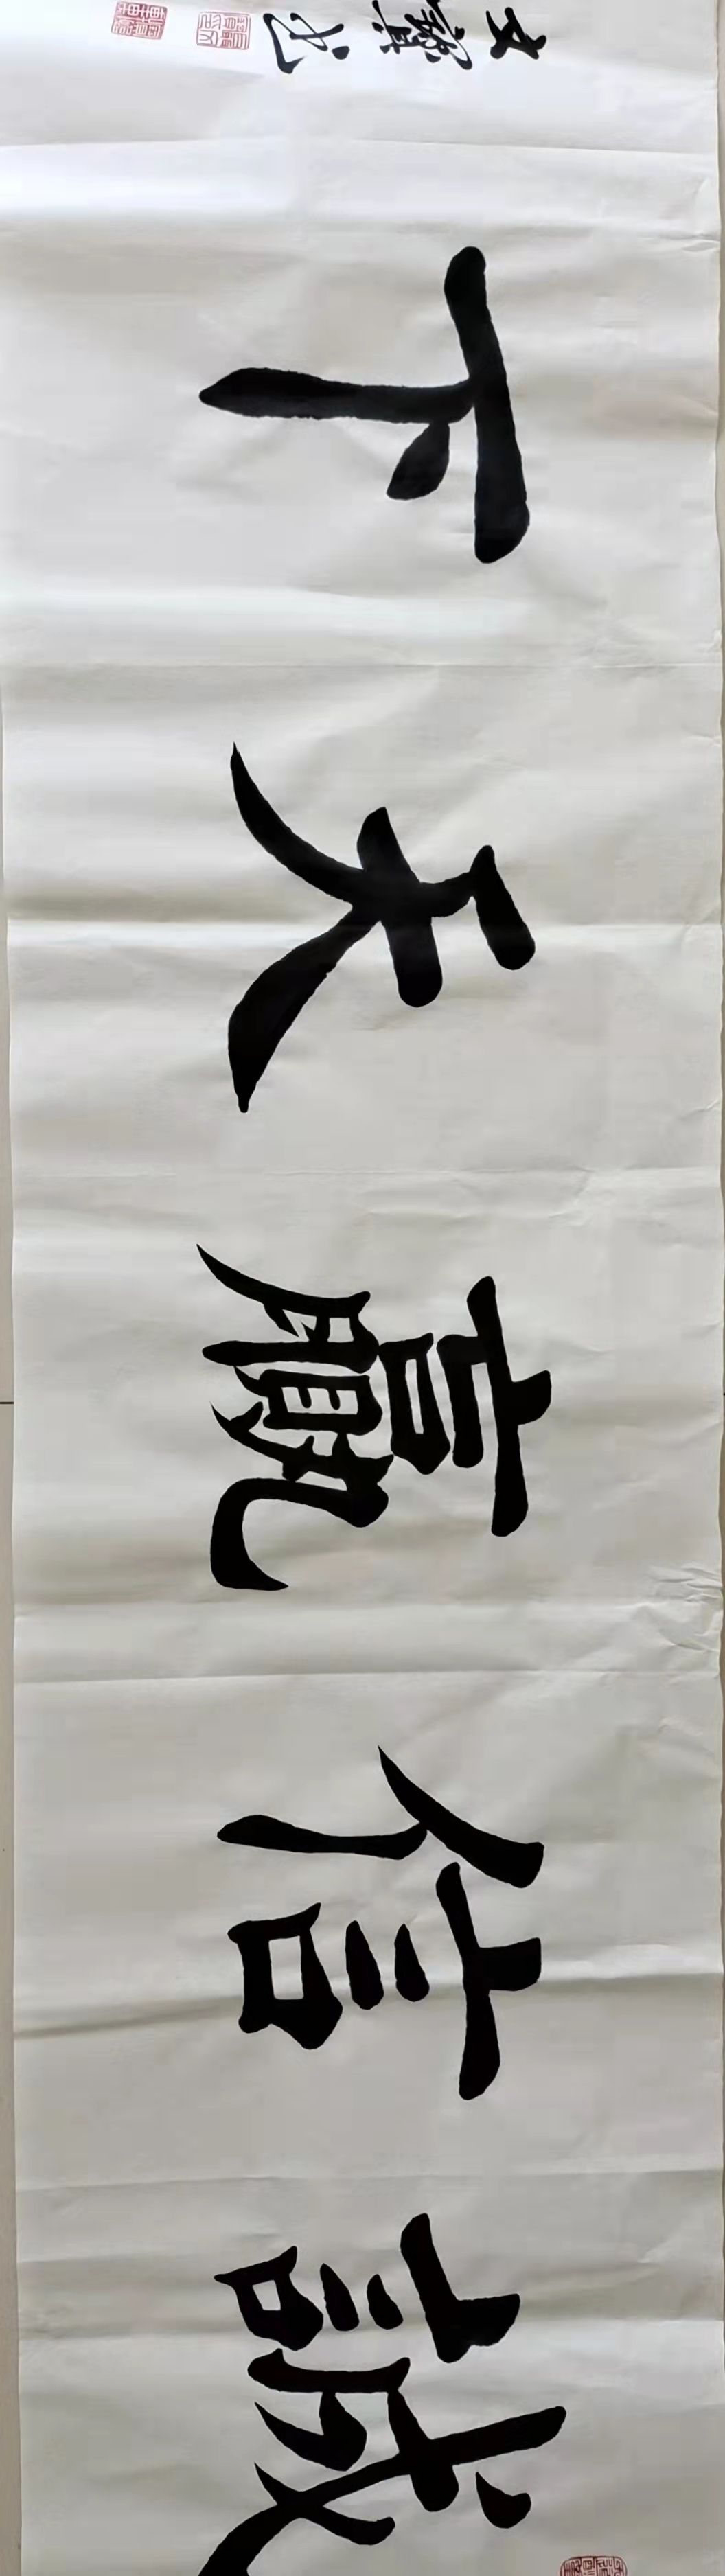 誠信贏天下
文寶书